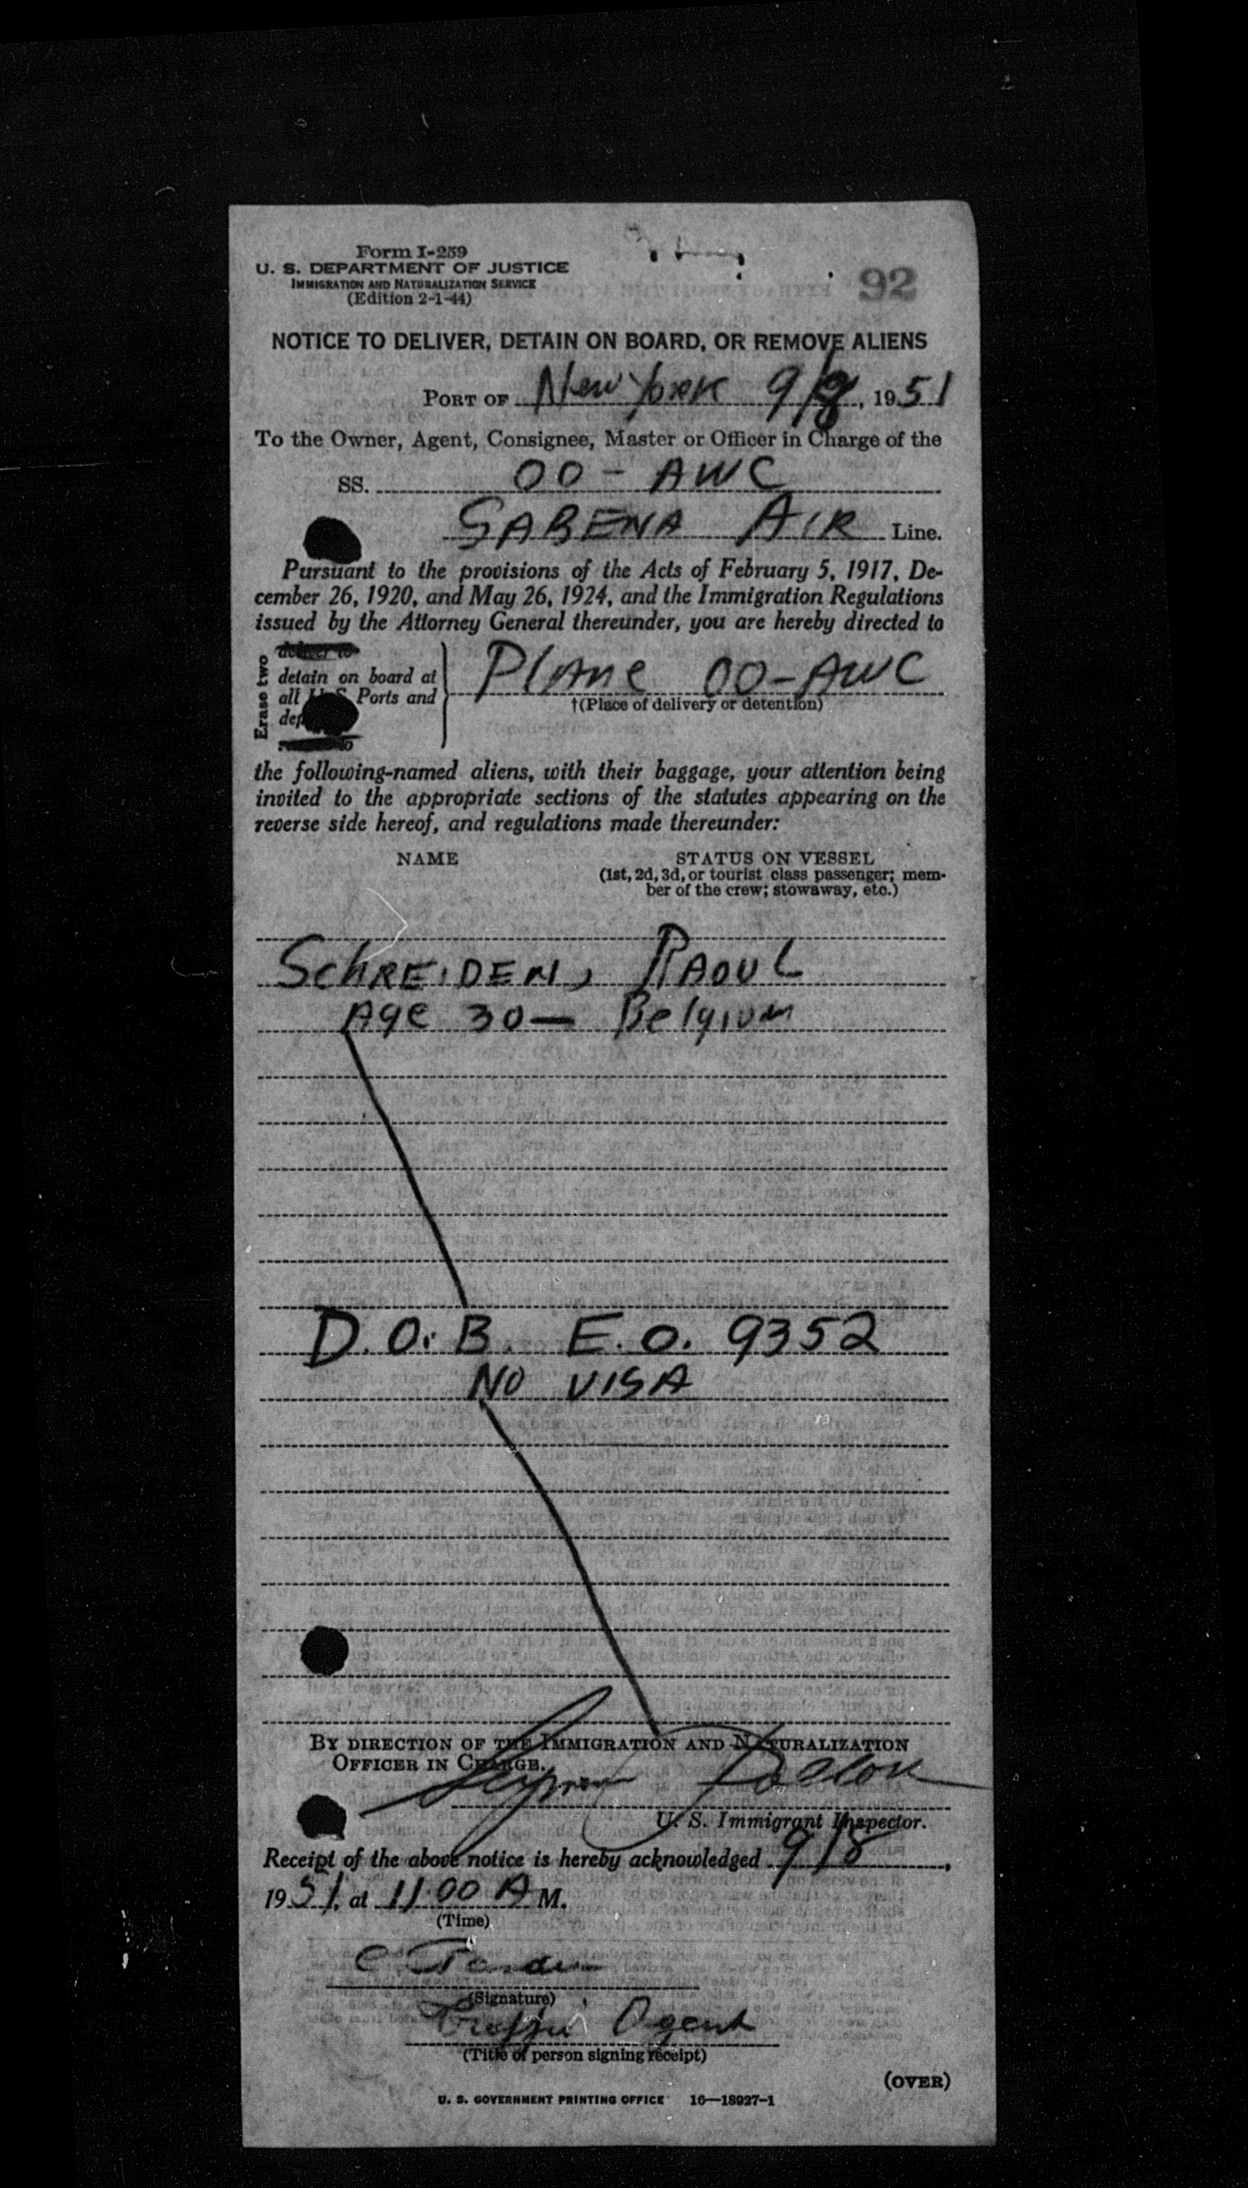 Form I-259
U. S. DEPARTMENT OF JUSTICE
IMMIGRATION AND NATURALIZATION SERVICE
(Edition 2-1-44)
92
NOTICE TO DELIVER, DETAIN ON BOARD, OR REMOVE ALIENS
PORT OF New York 9/8, 1951
To the Owner, Agent, Consignee, Master or Officer in Charge of the
SS. OO - AWC
SABENA AIR Line.
Pursuant to the provisions of the Acts of February 5, 1917, De-
cember 26, 1920, and May 26, 1924, and the Immigration Regulations
issued by the Attorney General thereunder, you are hereby directed to
Erase two
deliver to
detain on board at
all U.S. Ports and
Plane OO-AWC
†(Place of delivery or detention)
the following-named aliens, with their baggage, your attention being
invited to the appropriate sections of the statutes appearing on the
reverse side hereof, and regulations made thereunder:
NAME
STATUS ON VESSEL
(1st, 2d, 3d, or tourist class passenger; mem-
ber of the crew; stowaway, etc.)
SCHREIDEN, RAOUL
Age 30 — Belgium
D.O.B. E.O. 9352
NO VISA
BY DIRECTION OF THE IMMIGRATION AND NATURALIZATION
OFFICER IN CHARGE.
U. S. Immigrant Inspector.
Receipt of the above notice is hereby acknowledged 9/8,
1951, at 11:00 A M.
(Time)
(Signature)
Traffic Agent
(Title of person signing receipt)
(OVER)
U. S. GOVERNMENT PRINTING OFFICE 16—18927-1